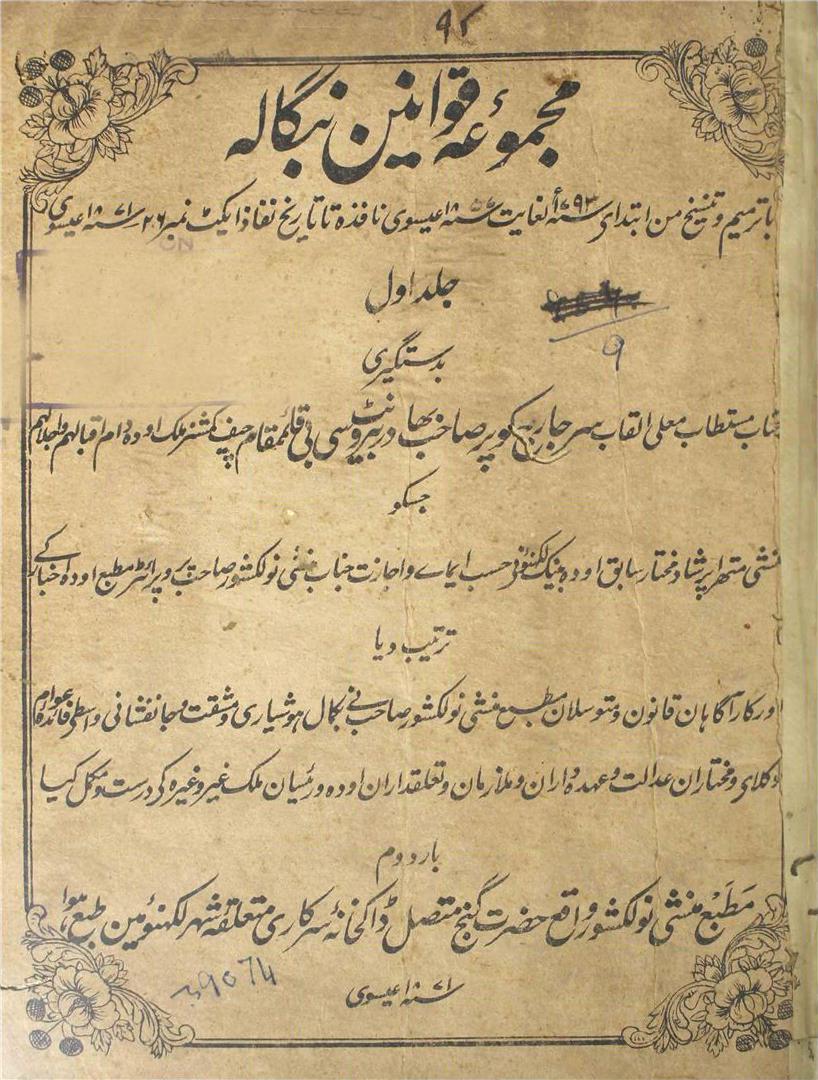 ۹۲
مجموعہ قوانین بنگالہ
با ترمیم و تنسیخ من ابتدای سنہ ۱۷۹۳ لغایت سنہ ۱۸ عیسوی نافذہ تا تاریخ نفاذ ایکٹ نمبر ۲۶ سنہ ۱۸۷۱ عیسوی
جلد اول
9
بدستگیری
جناب مستطاب معلی القاب سر جارج کوپر صاحب بہادر بیرونٹ سی بی قائمقام چیف کمشنر ملک اودہ دام اقبالہم واجلالہم
جسکو
منشی متھرا پرشاد مختار سابق اودہ بینک لکھنؤ نے حسب ایماے و اجازت جناب منشی نولکشور صاحب پروپرائٹر مطبع اودہ اخبار کے
ترتیب دیا
اور کار آگاہان قانون و متوسلان مطبع منشی نولکشور صاحب نے بکمال ہوشیاری و مشقت و جانفشانی واسطے فائدہ عوام
وکلای و مختاران عدالت و عہدہ داران و ملازمان و تعلقداران اودہ و رئیسان ملک غیر وغیرہ کی درست و مکمل کیا
بار دوم
مَطْبَع منشی نولکشور واقع حضرت گنج متصل ڈاکخانۂ سرکاری متعلقہ شہر لکھنؤ مین طبع ہوا
سنہ ۱۸۷۱ عیسوی
39074